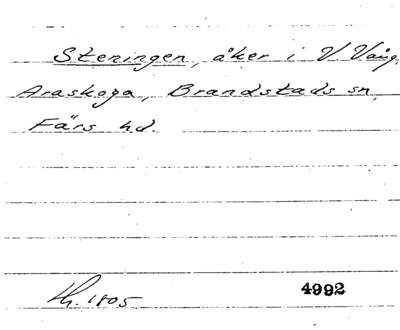 Steningen, åker i V Vång,
Araskoga, Brandstads sn,
Färs hd.
1805 4992